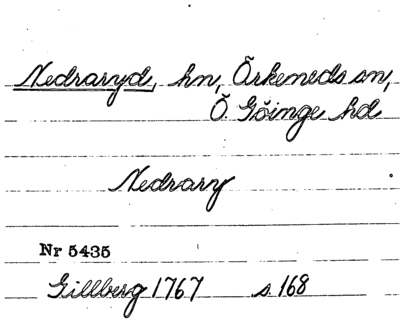 Nedraryd, hn, Örkeneds sn,
Ö. Göinge hd
Nedrary
Nr 5435
Gillberg 1767 s. 168